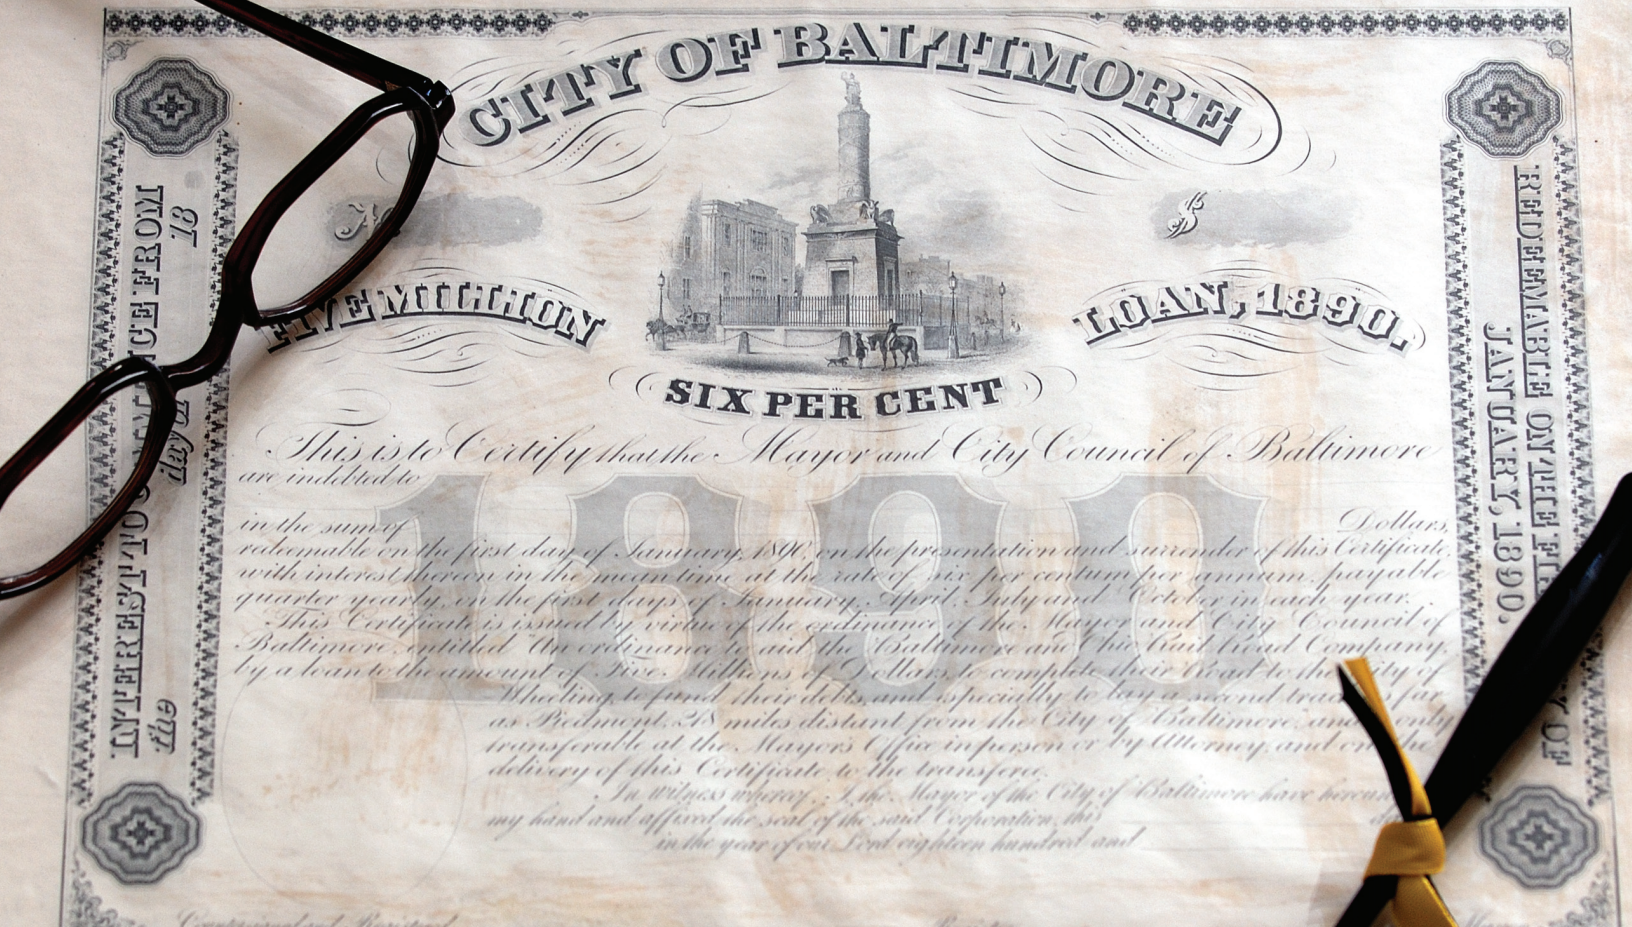 CITY OF BALTIMORE
No
$
FIVE MILLION
LOAN, 1890.
SIX PER CENT
This is to Certify that the Mayor and City Council of Baltimore
are indebted to
in the sum of Dollars,
redeemable on the first day of January, 1890, on the presentation and surrender of this Certificate,
with interest thereon in the mean time at the rate of six per centum per annum, payable
quarter yearly, on the first days of January, April, July and October in each year.
This Certificate is issued by virtue of the ordinance of the Mayor and City Council of
Baltimore, entitled "An ordinance to aid the Baltimore and Ohio Rail Road Company,
by a loan to the amount of Five Millions of Dollars, to complete their road to the City of
Wheeling, to fund their debts, and especially to lay a second track as far
as Piedmont, 218 miles distant from the City of Baltimore" and only
transferable at the Mayor's Office in person or by Attorney, and on the
delivery of this Certificate to the transferee.
In witness whereof, I, the Mayor of the City of Baltimore have hereunto
my hand and affixed the seal of the said Corporation, this
in the year of our Lord eighteen hundred and
Countersigned and Registered
Register
Mayor
1890
INTEREST TO COMMENCE FROM
the day of 18
REDEEMABLE ON THE FIRST DAY OF
JANUARY, 1890.